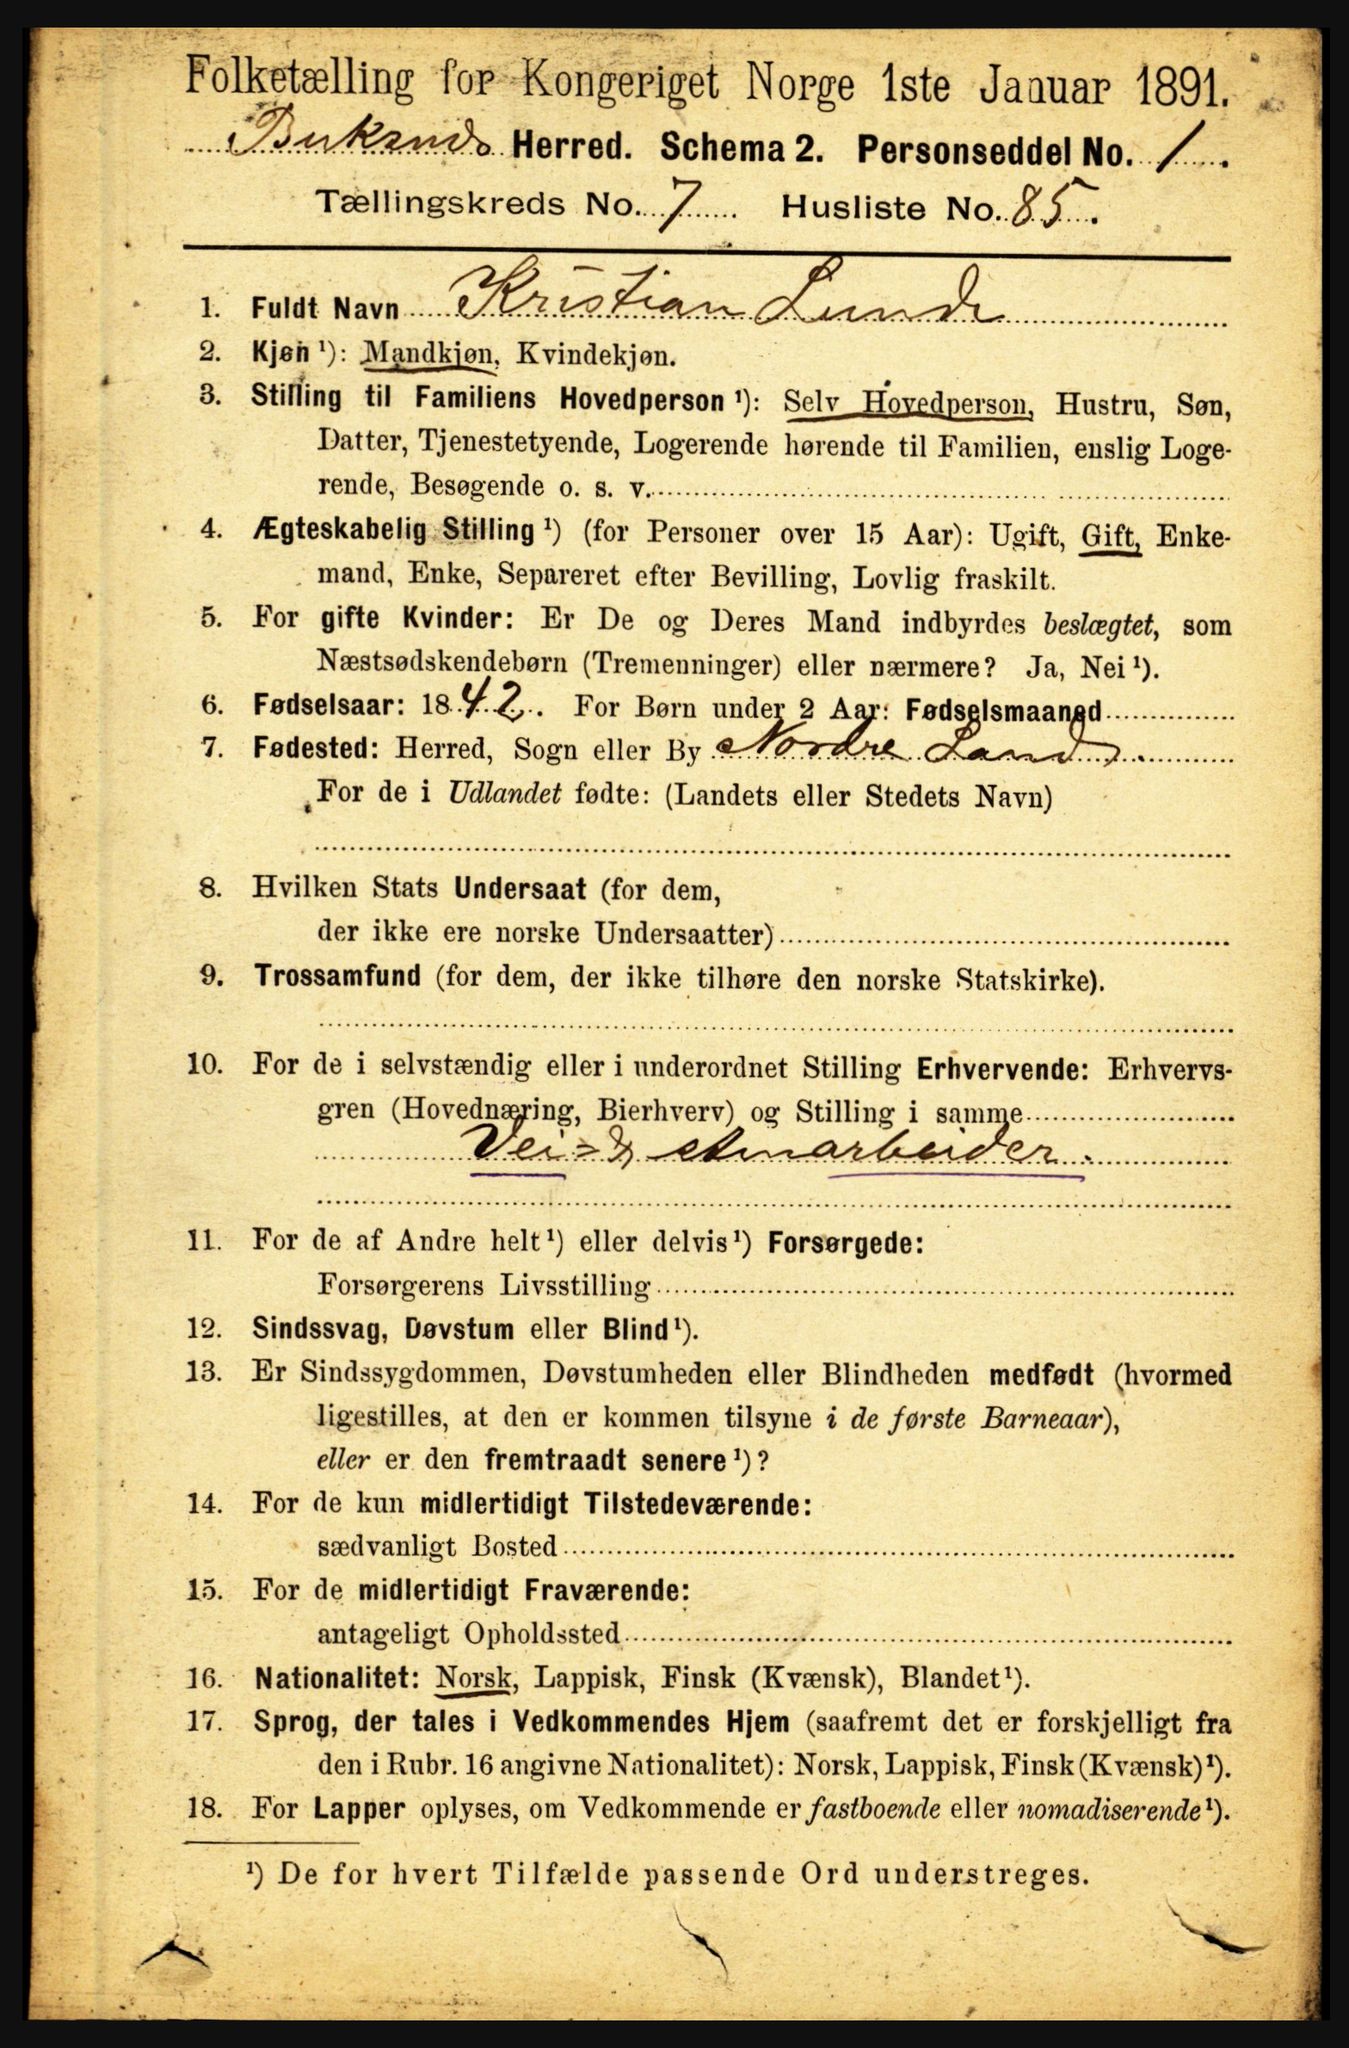 Folketælling for Kongeriget Norge 1ste Januar 1891.
Buksnes Herred. Schema 2. Personseddel No. 1.
Tællingskreds No. 7 Husliste No. 85.
1. Fuldt Navn Kristian Lunde
2. Kjøn ¹): Mandkjøn, Kvindekjøn.
3. Stilling til Familiens Hovedperson ¹): Selv Hovedperson, Hustru, Søn,
Datter, Tjenestetyende, Logerende hørende til Familien, enslig Loge-
rende, Besøgende o. s. v.
4. Ægteskabelig Stilling ¹) (for Personer over 15 Aar): Ugift, Gift, Enke-
mand, Enke, Separeret efter Bevilling, Lovlig fraskilt.
5. For gifte Kvinder: Er De og Deres Mand indbyrdes beslægtet, som
Næstsødskendebørn (Tremenninger) eller nærmere? Ja, Nei ¹).
6. Fødselsaar: 1842. For Børn under 2 Aar: Fødselsmaaned
7. Fødested: Herred, Sogn eller By Nordre Land.
For de i Udlandet fødte: (Landets eller Stedets Navn)
8. Hvilken Stats Undersaat (for dem,
der ikke ere norske Undersaatter)
9. Trossamfund (for dem, der ikke tilhøre den norske Statskirke).
10. For de i selvstændig eller i underordnet Stilling Erhvervende: Erhvervs-
gren (Hovednæring, Bierhverv) og Stilling i samme
Vei- & arbeider.
11. For de af Andre helt ¹) eller delvis ¹) Forsørgede:
Forsørgerens Livsstilling
12. Sindssvag, Døvstum eller Blind ¹).
13. Er Sindssygdommen, Døvstumheden eller Blindheden medfødt (hvormed
ligestilles, at den er kommen tilsyne i de første Barneaar),
eller er den fremtraadt senere ¹)?
14. For de kun midlertidigt Tilstedeværende:
sædvanligt Bosted
15. For de midlertidigt Fraværende:
antageligt Opholdssted
16. Nationalitet: Norsk, Lappisk, Finsk (Kvænsk), Blandet ¹).
17. Sprog, der tales i Vedkommendes Hjem (saafremt det er forskjelligt fra
den i Rubr. 16 angivne Nationalitet): Norsk, Lappisk, Finsk (Kvænsk) ¹).
18. For Lapper oplyses, om Vedkommende er fastboende eller nomadiserende ¹).
¹) De for hvert Tilfælde passende Ord understreges.